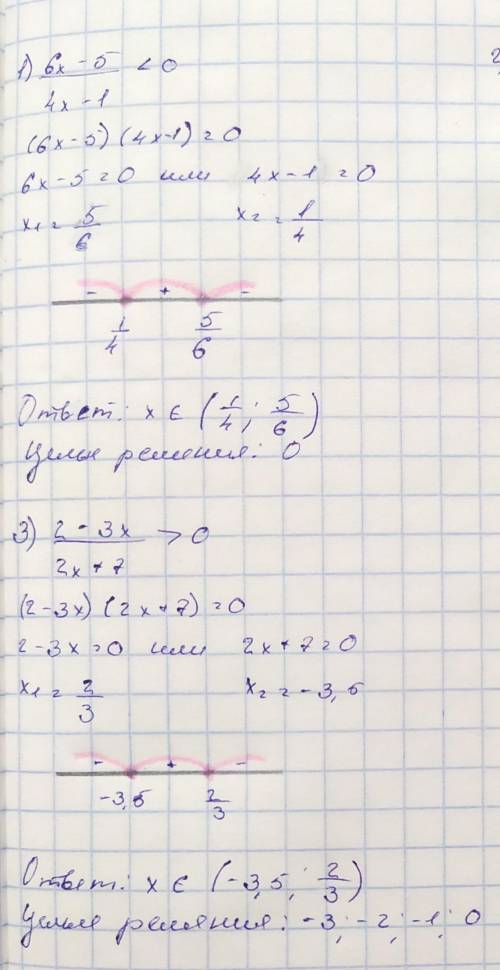 1) 6x - 5 / 4x - 1 < 0
(6x - 5) (4x - 1) = 0
6x - 5 = 0 или 4x - 1 = 0
x1 = 5/6 x2 = 1/4
- + -
1/4 5/6
Ответ: x ∈ (1/4; 5/6)
Целые решения: 0
3) 2 - 3x / 2x + 7 > 0
(2 - 3x) (2x + 7) = 0
2 - 3x = 0 или 2x + 7 = 0
x1 = 2/3 x2 = -3,5
- + -
-3,5 2/3
Ответ: x ∈ (-3,5; 2/3)
Целые решения: -3; -2; -1; 0